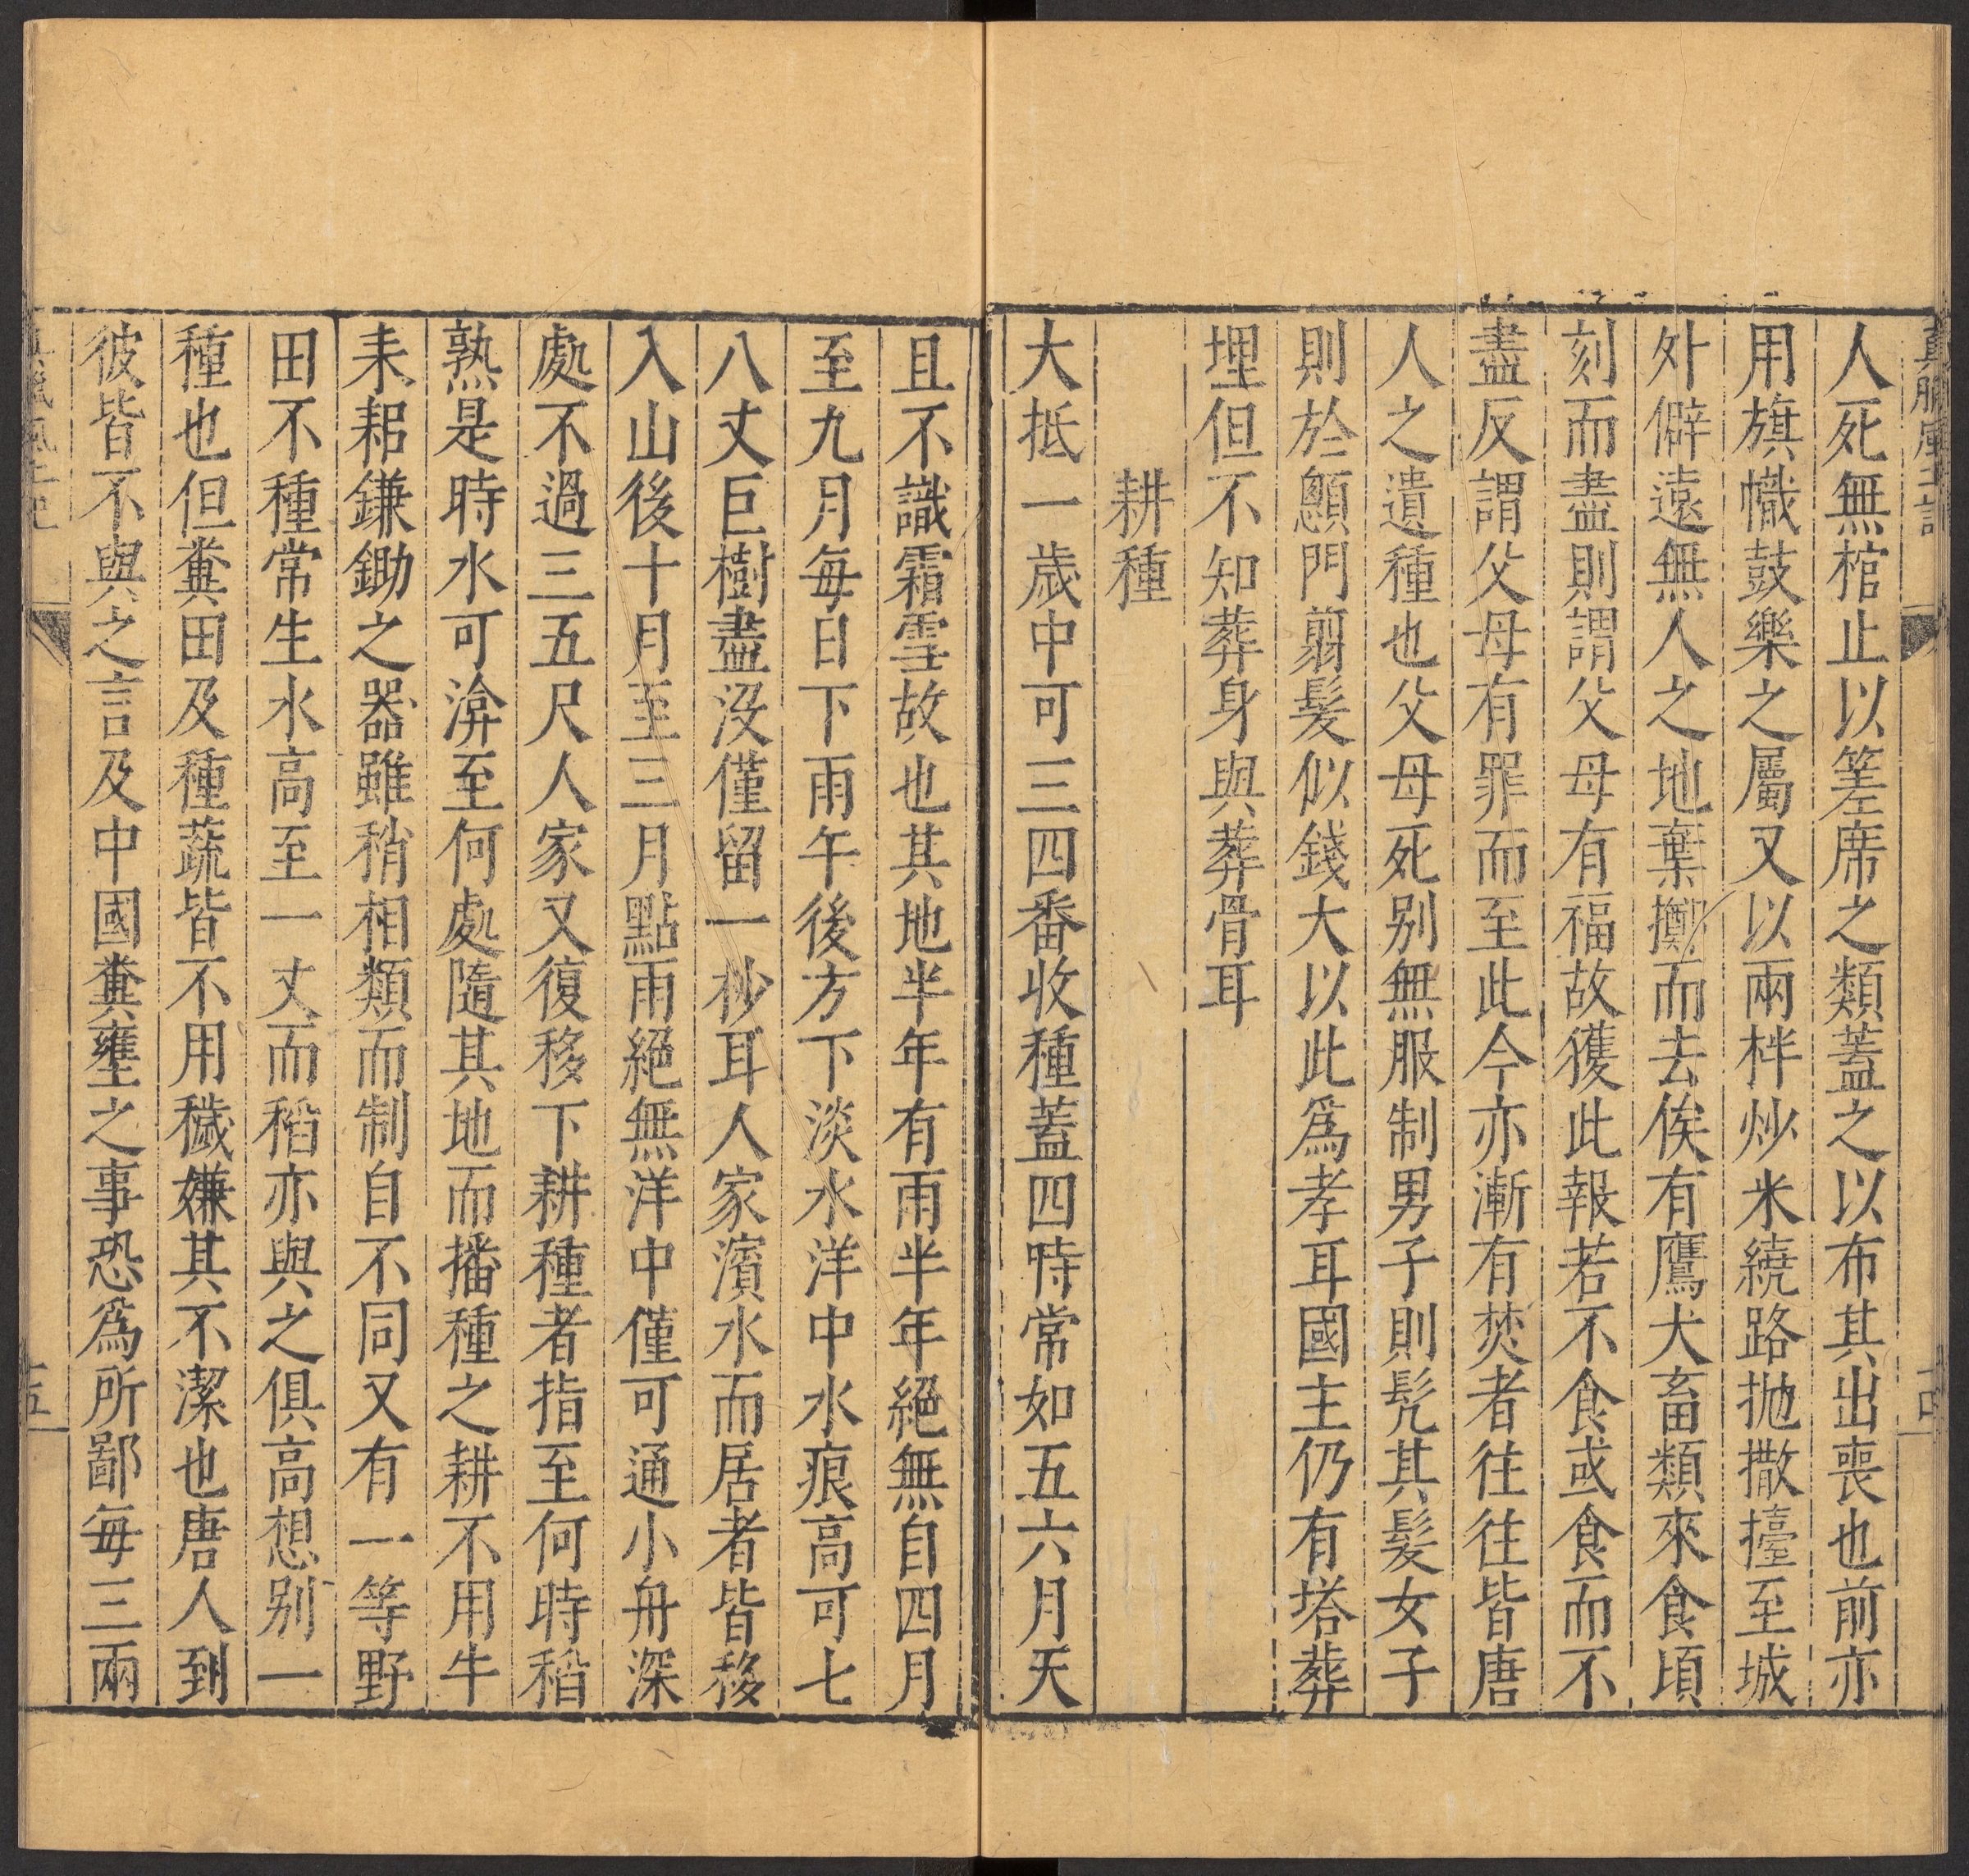 真臘風土記
十四
人死無棺止以筳席之類蓋之以布其出喪也前亦
用旗幟鼓樂之屬又以兩柈炒米繞路拋撒擡至城
外僻遠無人之地棄擲而去俟有鷹犬畜類來食頃
刻而盡則謂父母有福故獲此報若不食或食而不
盡反謂父母有罪而至此今亦漸有焚者往往皆唐
人之遺種也父母死别無服制男子則髠其髮女子
則於顖門翦髮似錢大以此爲孝耳國主仍有塔葬
埋但不知葬身與葬骨耳
耕種
大抵一歲中可三四番收種蓋四時常如五六月天
且不識霜雪故也其地半年有雨半年絕無自四月
至九月每日下雨午後方下淡水洋中水痕高可七
八丈巨樹盡沒僅留一杪耳人家濱水而居者皆移
入山後十月至三月點雨絕無洋中僅可通小舟深
處不過三五尺人家又復移下耕種者指至何時稻
熟是時水可渰至何處隨其地而播種之耕不用牛
耒耜鎌鋤之器雖稍相類而制自不同又有一等野
田不種常生水高至一丈而稻亦與之俱高想别一
種也但糞田及種蔬皆不用穢嫌其不潔也唐人到
彼皆不與之言及中國糞壅之事恐爲所鄙每三兩
真臘風土記
十五